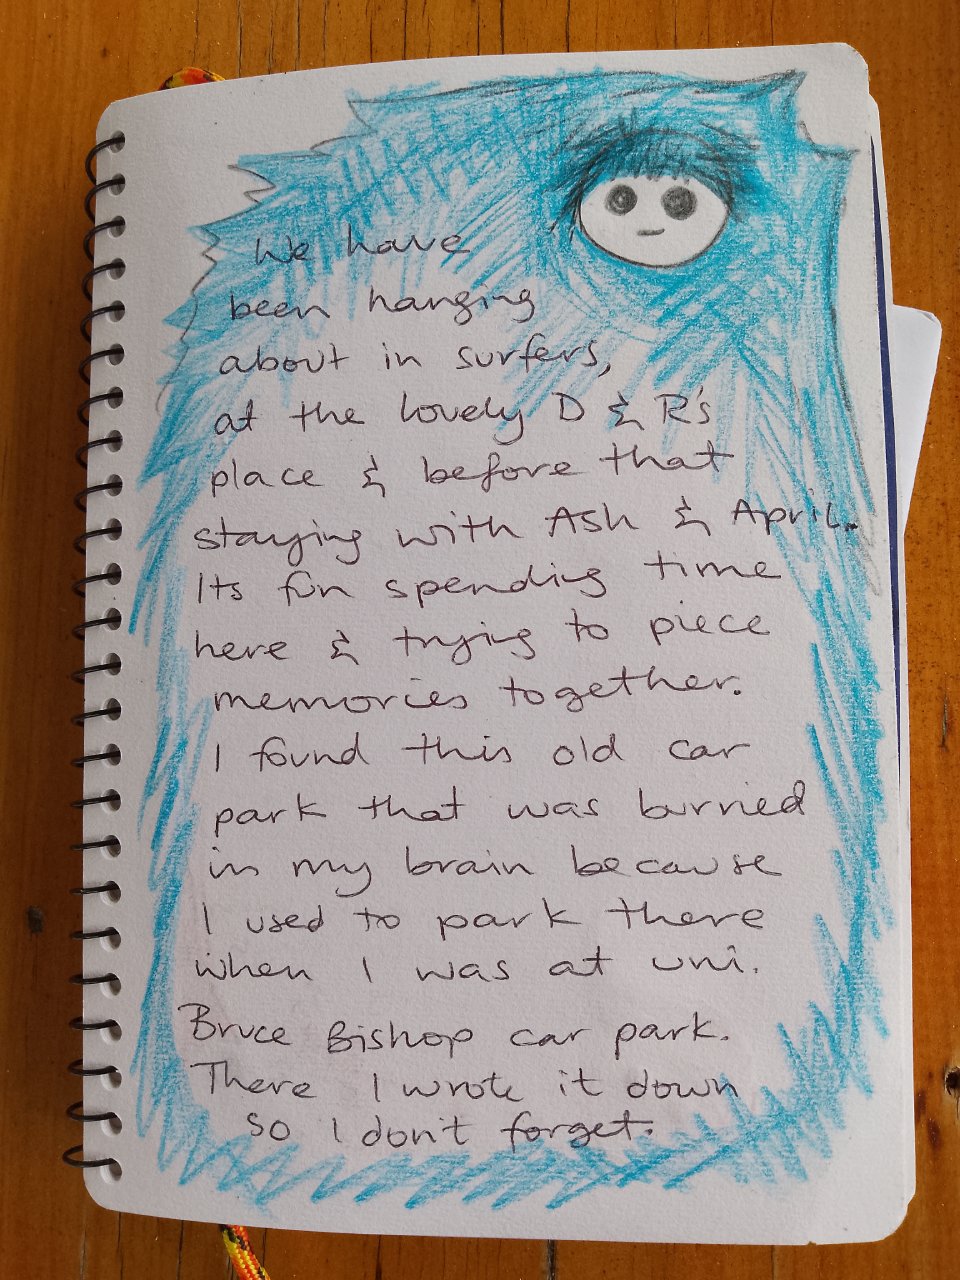 We have
been hanging
about in surfers,
at the lovely D & R's
place & before that
staying with Ash & April.
Its fun spending time
here & trying to piece
memories together.
I found this old car
park that was burried
in my brain because
I used to park there
when I was at uni.
Bruce Bishop car park.
There I wrote it down
so I don't forget.